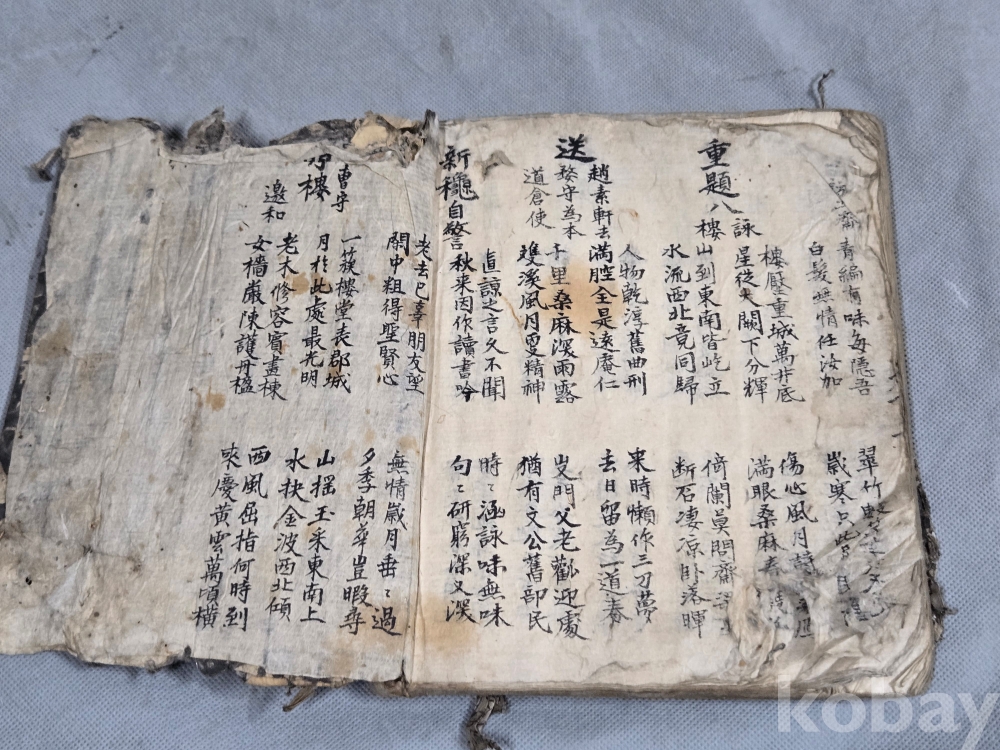 青編有味每隱吾
翠竹
白髮無情任汝加
歲寒只
重題八詠樓
樓壓重城萬井底
傷心風月詩
星從夬闕下分輝
滿眼桑麻春
山到東南皆屹立
倚闌莫問齊
水流西北竟同歸
断石凄凉卧落暉
送
趙素軒去
婺守為本
道倉使
人物乾淳舊曲刑
来時懶作三刀夢
滿腔全是遠庵仁
去日留為一道春
千里桑麻深雨露
父老歡迎處
雙溪風月更精神
猶有文公舊部民
新穐自警
直諒之言久不聞
時〻涵詠味無味
秋来因作讀書吟
句〻研窮深又深
老去已辜朋友望
無情歲月垂〻過
閑中粗得聖賢心
夕季朝華豈暇尋
曹守
樓
邀和
一簇樓堂表郡城
山揺玉采東南上
月於此處最光明
水抉金波西北傾
老木修容賓畫棟
西風屈指何時到
女檣嚴陳護丹楹
慶黄雲萬頃横
kobay